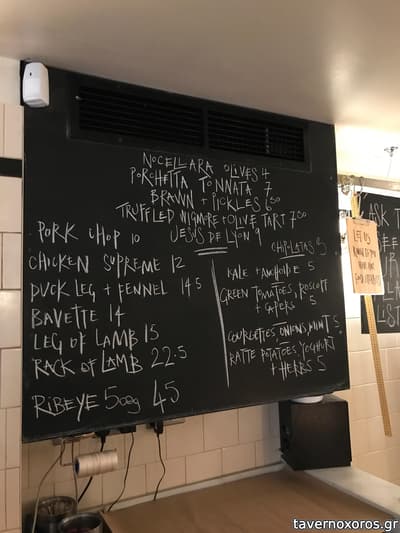 NOCELLARA OLIVES 4
PORCHETTA TONNATA 7
BRAWN + PICKLES 6.50
TRUFFLED WIGMORE + OLIVE TART 7.50
JESUS DE LYON 9
PORK CHOP 10
CHICKEN SUPREME 12
DUCK LEG + FENNEL 14.5
BAVETTE 14
LEG OF LAMB 15
RACK OF LAMB 22.5
RIBEYE 500g 45
CHIPOLATAS 8
KALE + ANCHOIDE 5
GREEN TOMATOES, ROSCOFF
+ CAPERS 5
COURGETTES, ONIONS, MINT 5
RATTE POTATOES, YOGHURT
+ HERBS 5
ASK T
LET US
KNOW IF YOU
HAVE ANY
tavernoxoros.gr